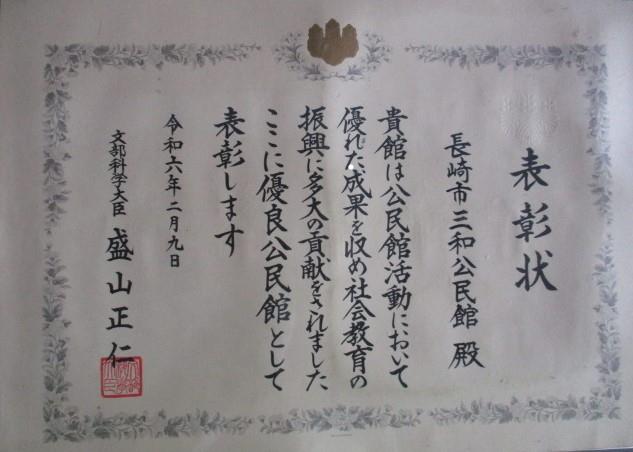 表彰状
長崎市三和公民館 殿
貴館は公民館活動において
優れた成果を収め社会教育の
振興に多大の貢献をされました
ここに優良公民館として
表彰します
令和六年二月九日
文部科学大臣 盛山正仁